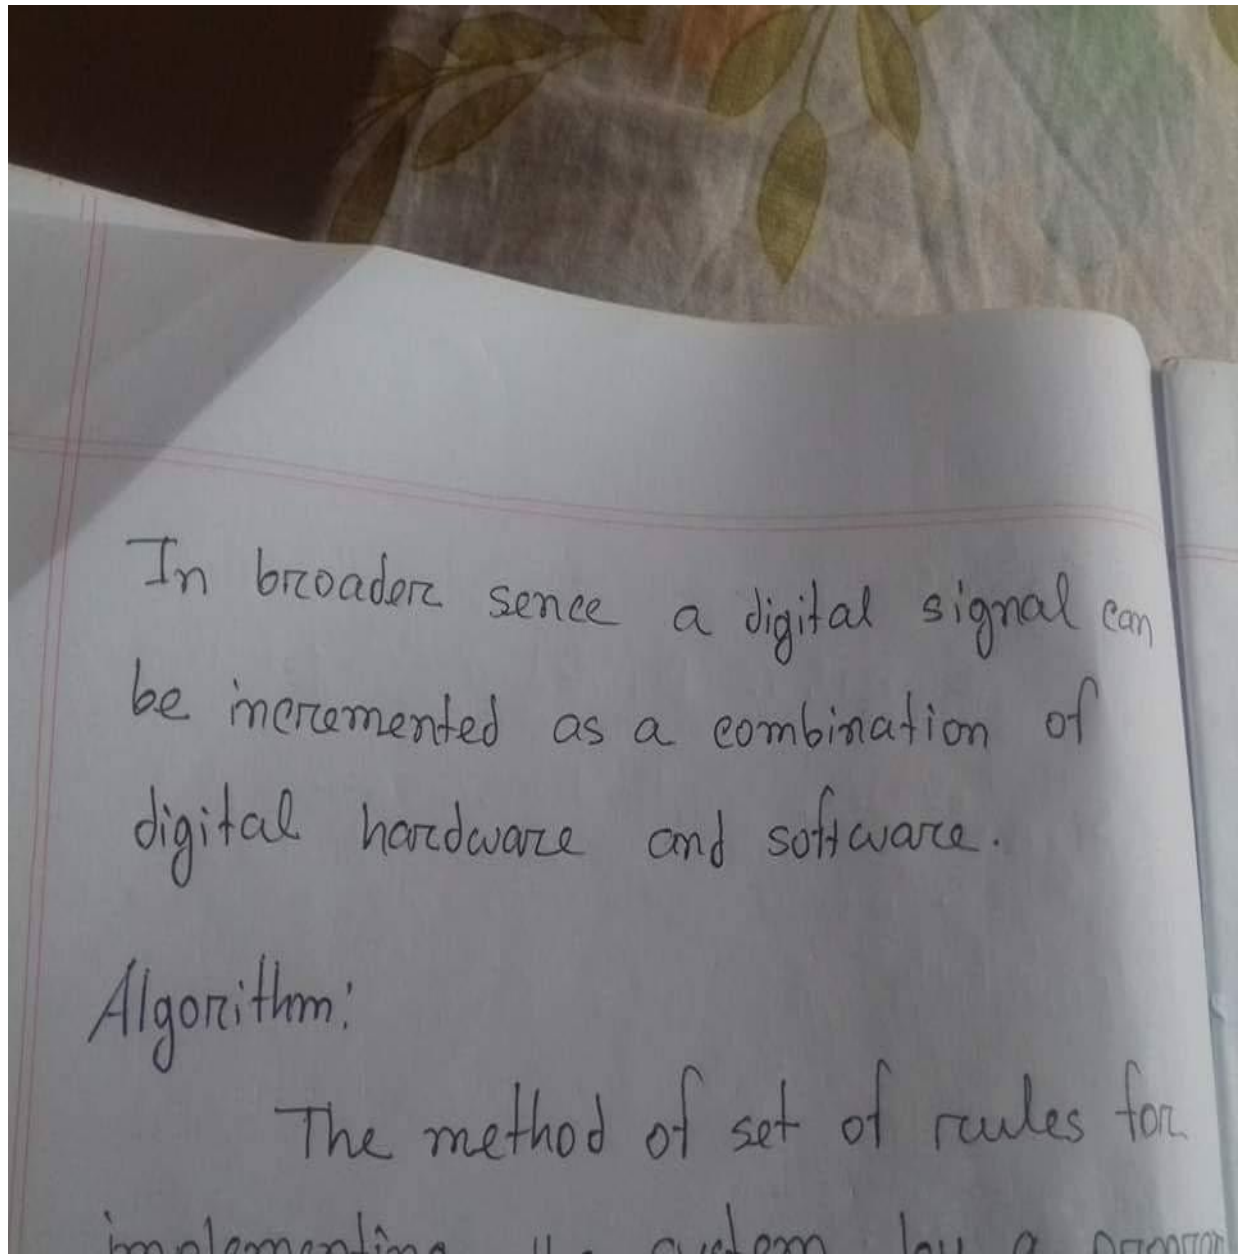 In broader sence a digital signal can
be incremented as a combination of
digital hardware and software.
Algorithm:
The method of set of rules for
implementing the system by a